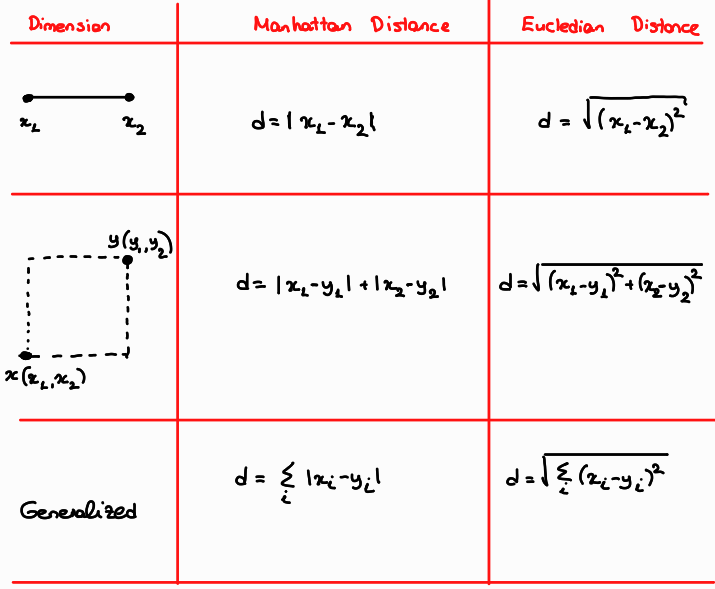 Dimension Manhattan Distance Eucledian Distance
x₁ x₂ d = |x₁-x₂| d = √(x₁-x₂)²
y(y₁,y₂)
d = |x₁-y₁| + |x₂-y₂| d = √(x₁-y₁)²+(x₂-y₂)²
x(x₁,x₂)
Generalized d = Σᵢ |xᵢ-yᵢ| d = √Σᵢ (xᵢ-yᵢ)²